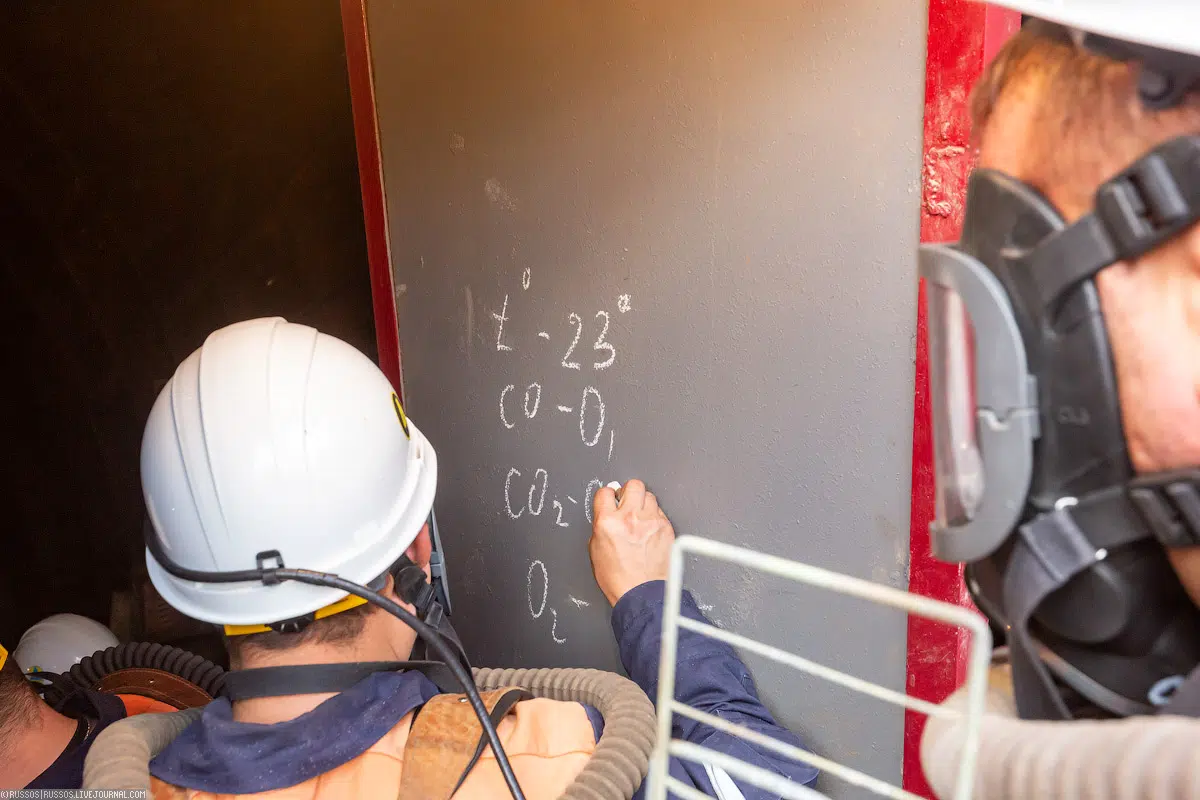 t° - 23°
CO - 0,
CO₂ - 0
O₂ -
©RUSSOS|RUSSOS.LIVEJOURNAL.COM